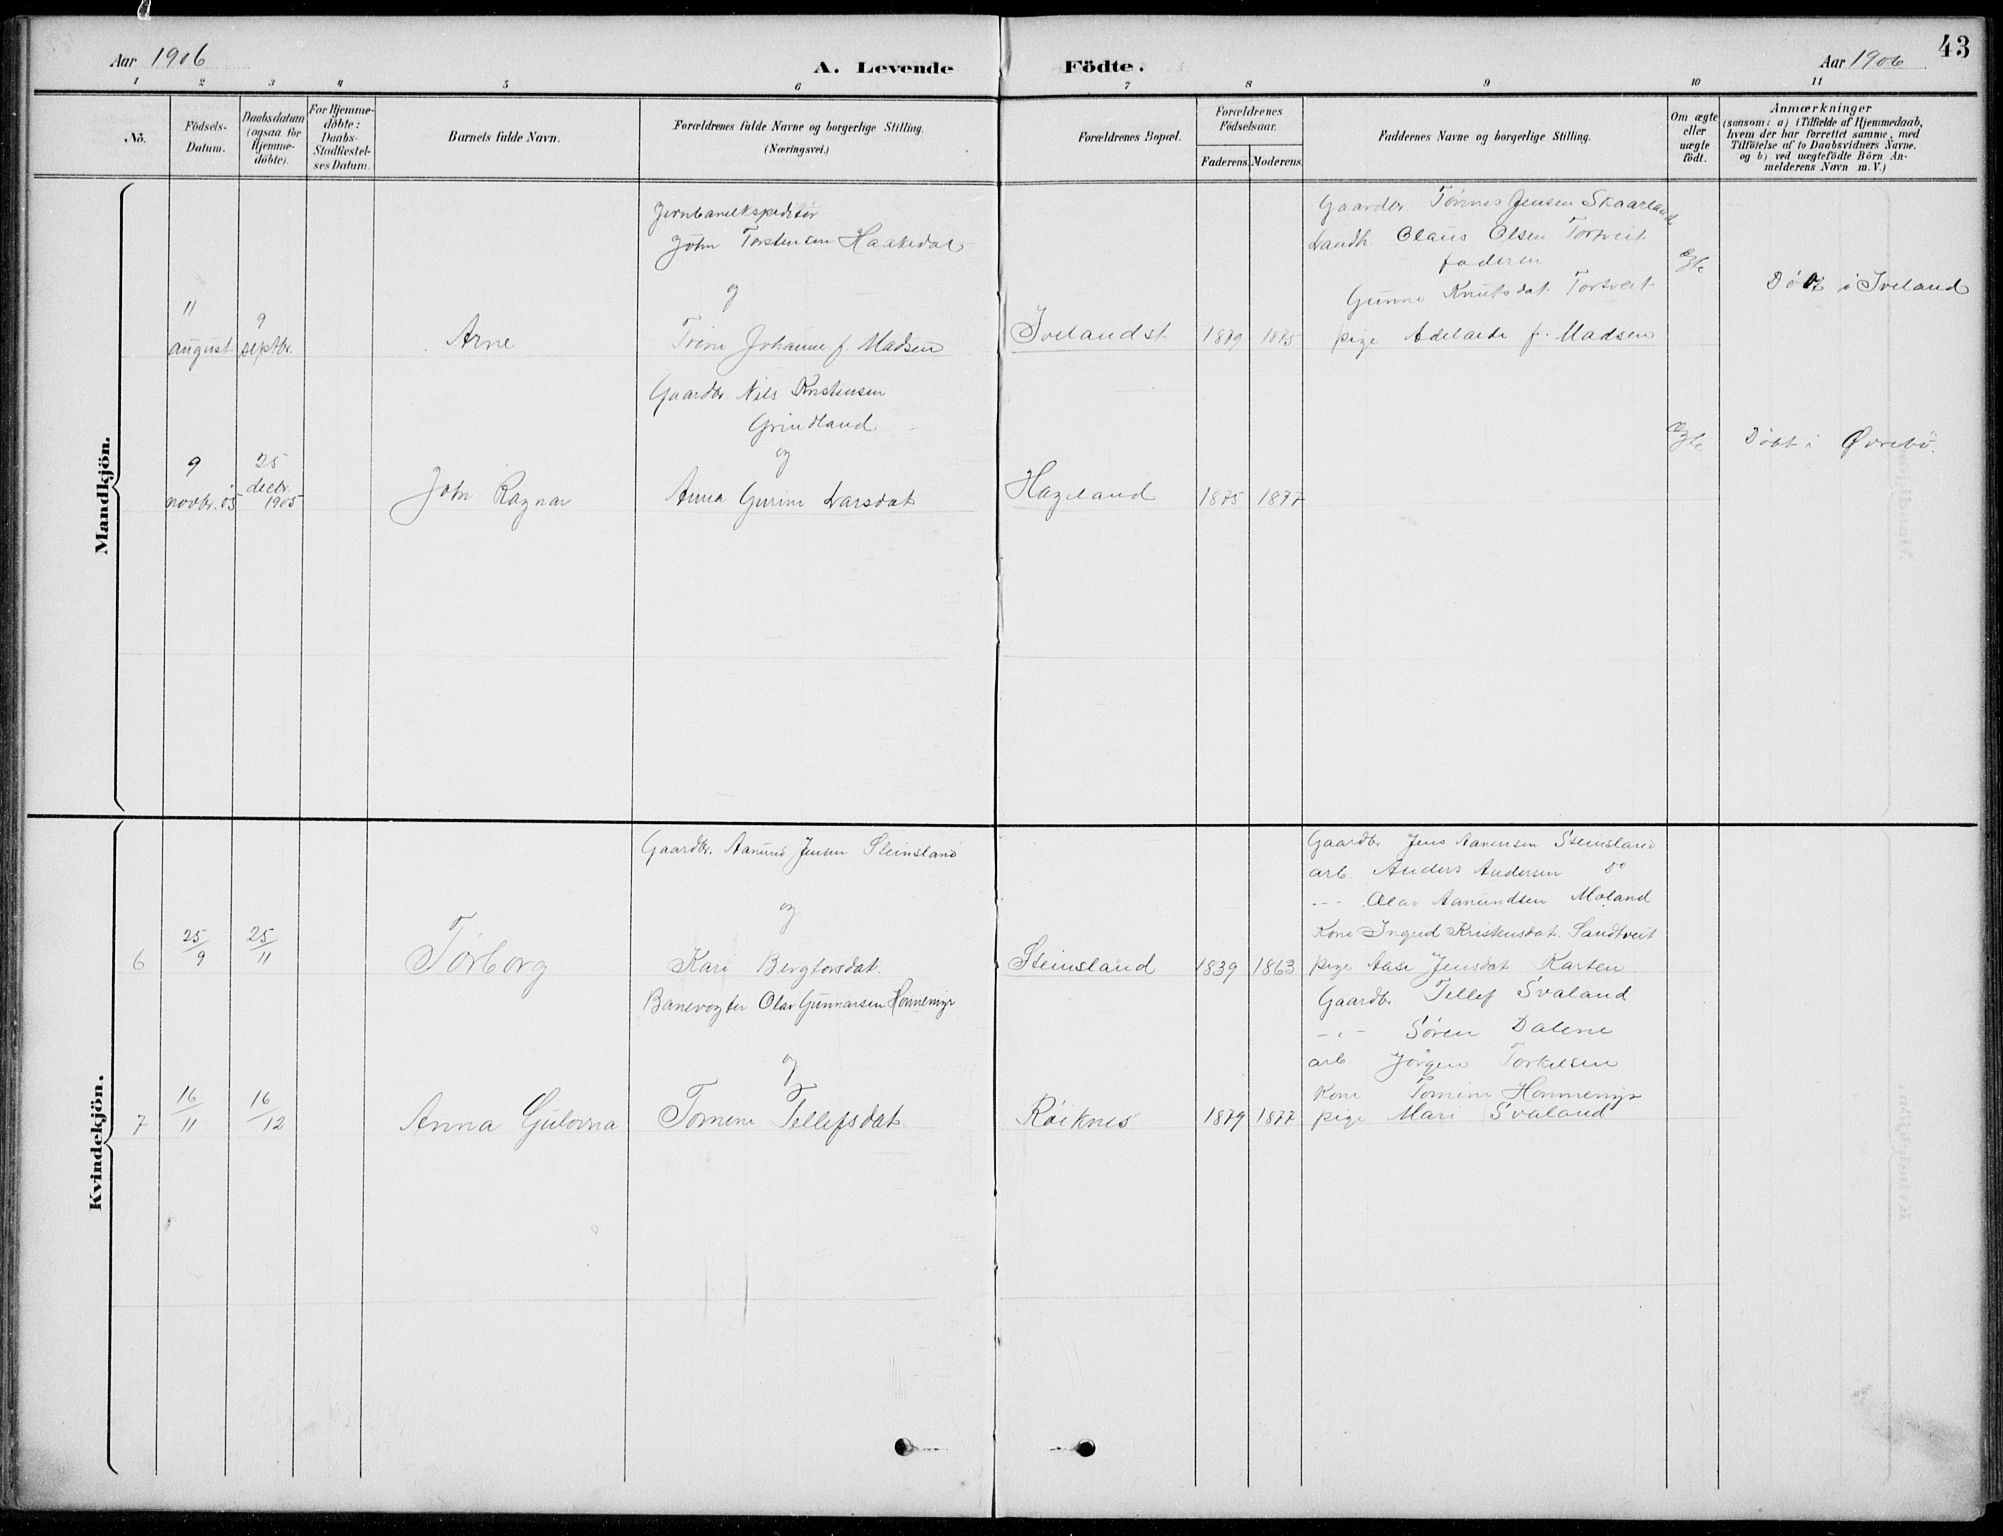 43
Aar 1906
A. Levende Födte.
Aar 1906
1 2 3 4 5 6 7 8 9 10 11
No.
Födsels-
Datum.
Daabsdatum
(ogsaa för
Hjemme-
döbte).
For Hjemme-
döbte:
Daabs-
Stadfæstel-
ses Datum.
Barnets fulde Navn.
Forældrenes fulde Navne og borgerlige Stilling.
(Næringsvei.)
Forældrenes Bopæl.
Forældrenes
Födselsaar.
Faderens. Moderens.
Faddernes Navne og borgerlige Stilling.
Om ægte
eller
uægte
födt.
Anmærkninger
(saasom: a) i Tilfælde af Hjemmedaab,
hvem der har forrettet samme, med
Tilföielse af to Daabsvidners Navne,
og b) ved uægtefödte Börn An-
melderens Navn m. V.)
Mandkjön.
11
august
9
septbr.
Arne
Jernbaneekspeditør
John Torstensen Haakedal
og
Trine Johanne f. Madsen
Ivelandst.
1879 1885
Gaardbr Tønnes Jensen Skaarland
Landh. Claus Olsen Tortveit
faderen
Gunne Knutsdat. Tortveit
pige Adelaide f. Madsen
Egte
Döbt i Iveland
9
novbr. 05
25
decbr.
1905
John Ragnar
Gaardbr. Nils Kristensen
Grindland
og
Anna Gurine Larsdat
Hageland
1875 1877
Egte
Döbt i Øvrebö.
Kvindekjön.
6
25/9
25/11
Torborg
Gaardbr. Aanund Jensen Steinsland
og
Kari Bergtorsdat.
Steinsland
1839 1863
Gaardbr Jens Aanensen Steinsland
arb Anders Andersen do
--- Olav Aanundsen Moland
Kone Ingrid Kristensdat. Sandtveit
pige Aase Jensdat Karten
7
16/11
16/12
Anna Gulovna
Banevogter Olav Gunnarsen Honnemyr
og
Tomene Tellefsdat
Röiknes
1879 1877
Gaardbr. Tellef Svaland
-"- Sören Dalene
arb Jörgen Torkelsen
Kone Tomine Honnemyr
pige Mari Svaland